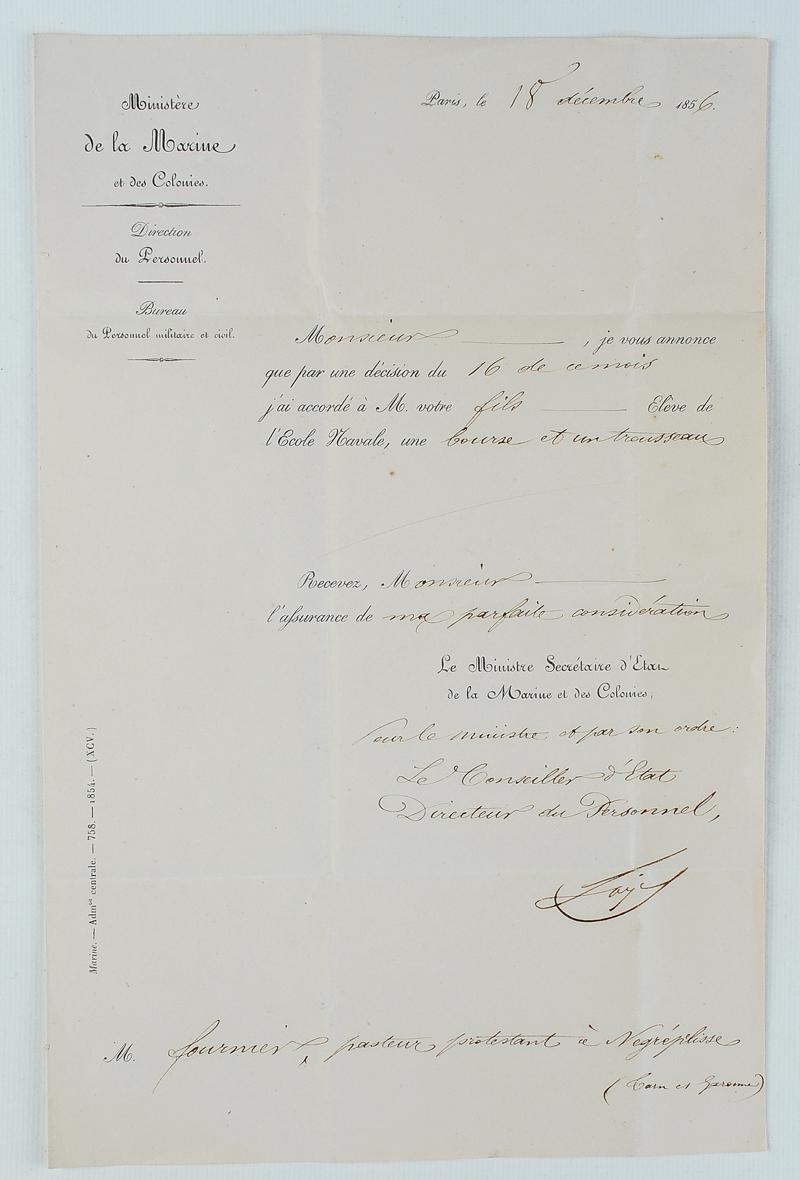 Ministère
de la Marine
et des Colonies.
Direction
du Personnel.
Bureau
du Personnel militaire et civil.
Paris, le 18 décembre 1856.
Monsieur, je vous annonce
que par une décision du 16 de ce mois
j'ai accordé à M. votre fils Elève de
l'Ecole Navale, une bourse et un trousseau
Recevez, Monsieur
l'assurance de ma parfaite considération
Le Ministre Secrétaire d'Etat
de la Marine et des Colonies,
Pour le ministre et par son ordre:
Le Conseiller d'Etat
Directeur du Personnel,
Marine. — Admon centrale. — 758. — 1854. — (XCV.)
M. fournier, pasteur protestant à Negréplisse
(Tarn et Garonne)